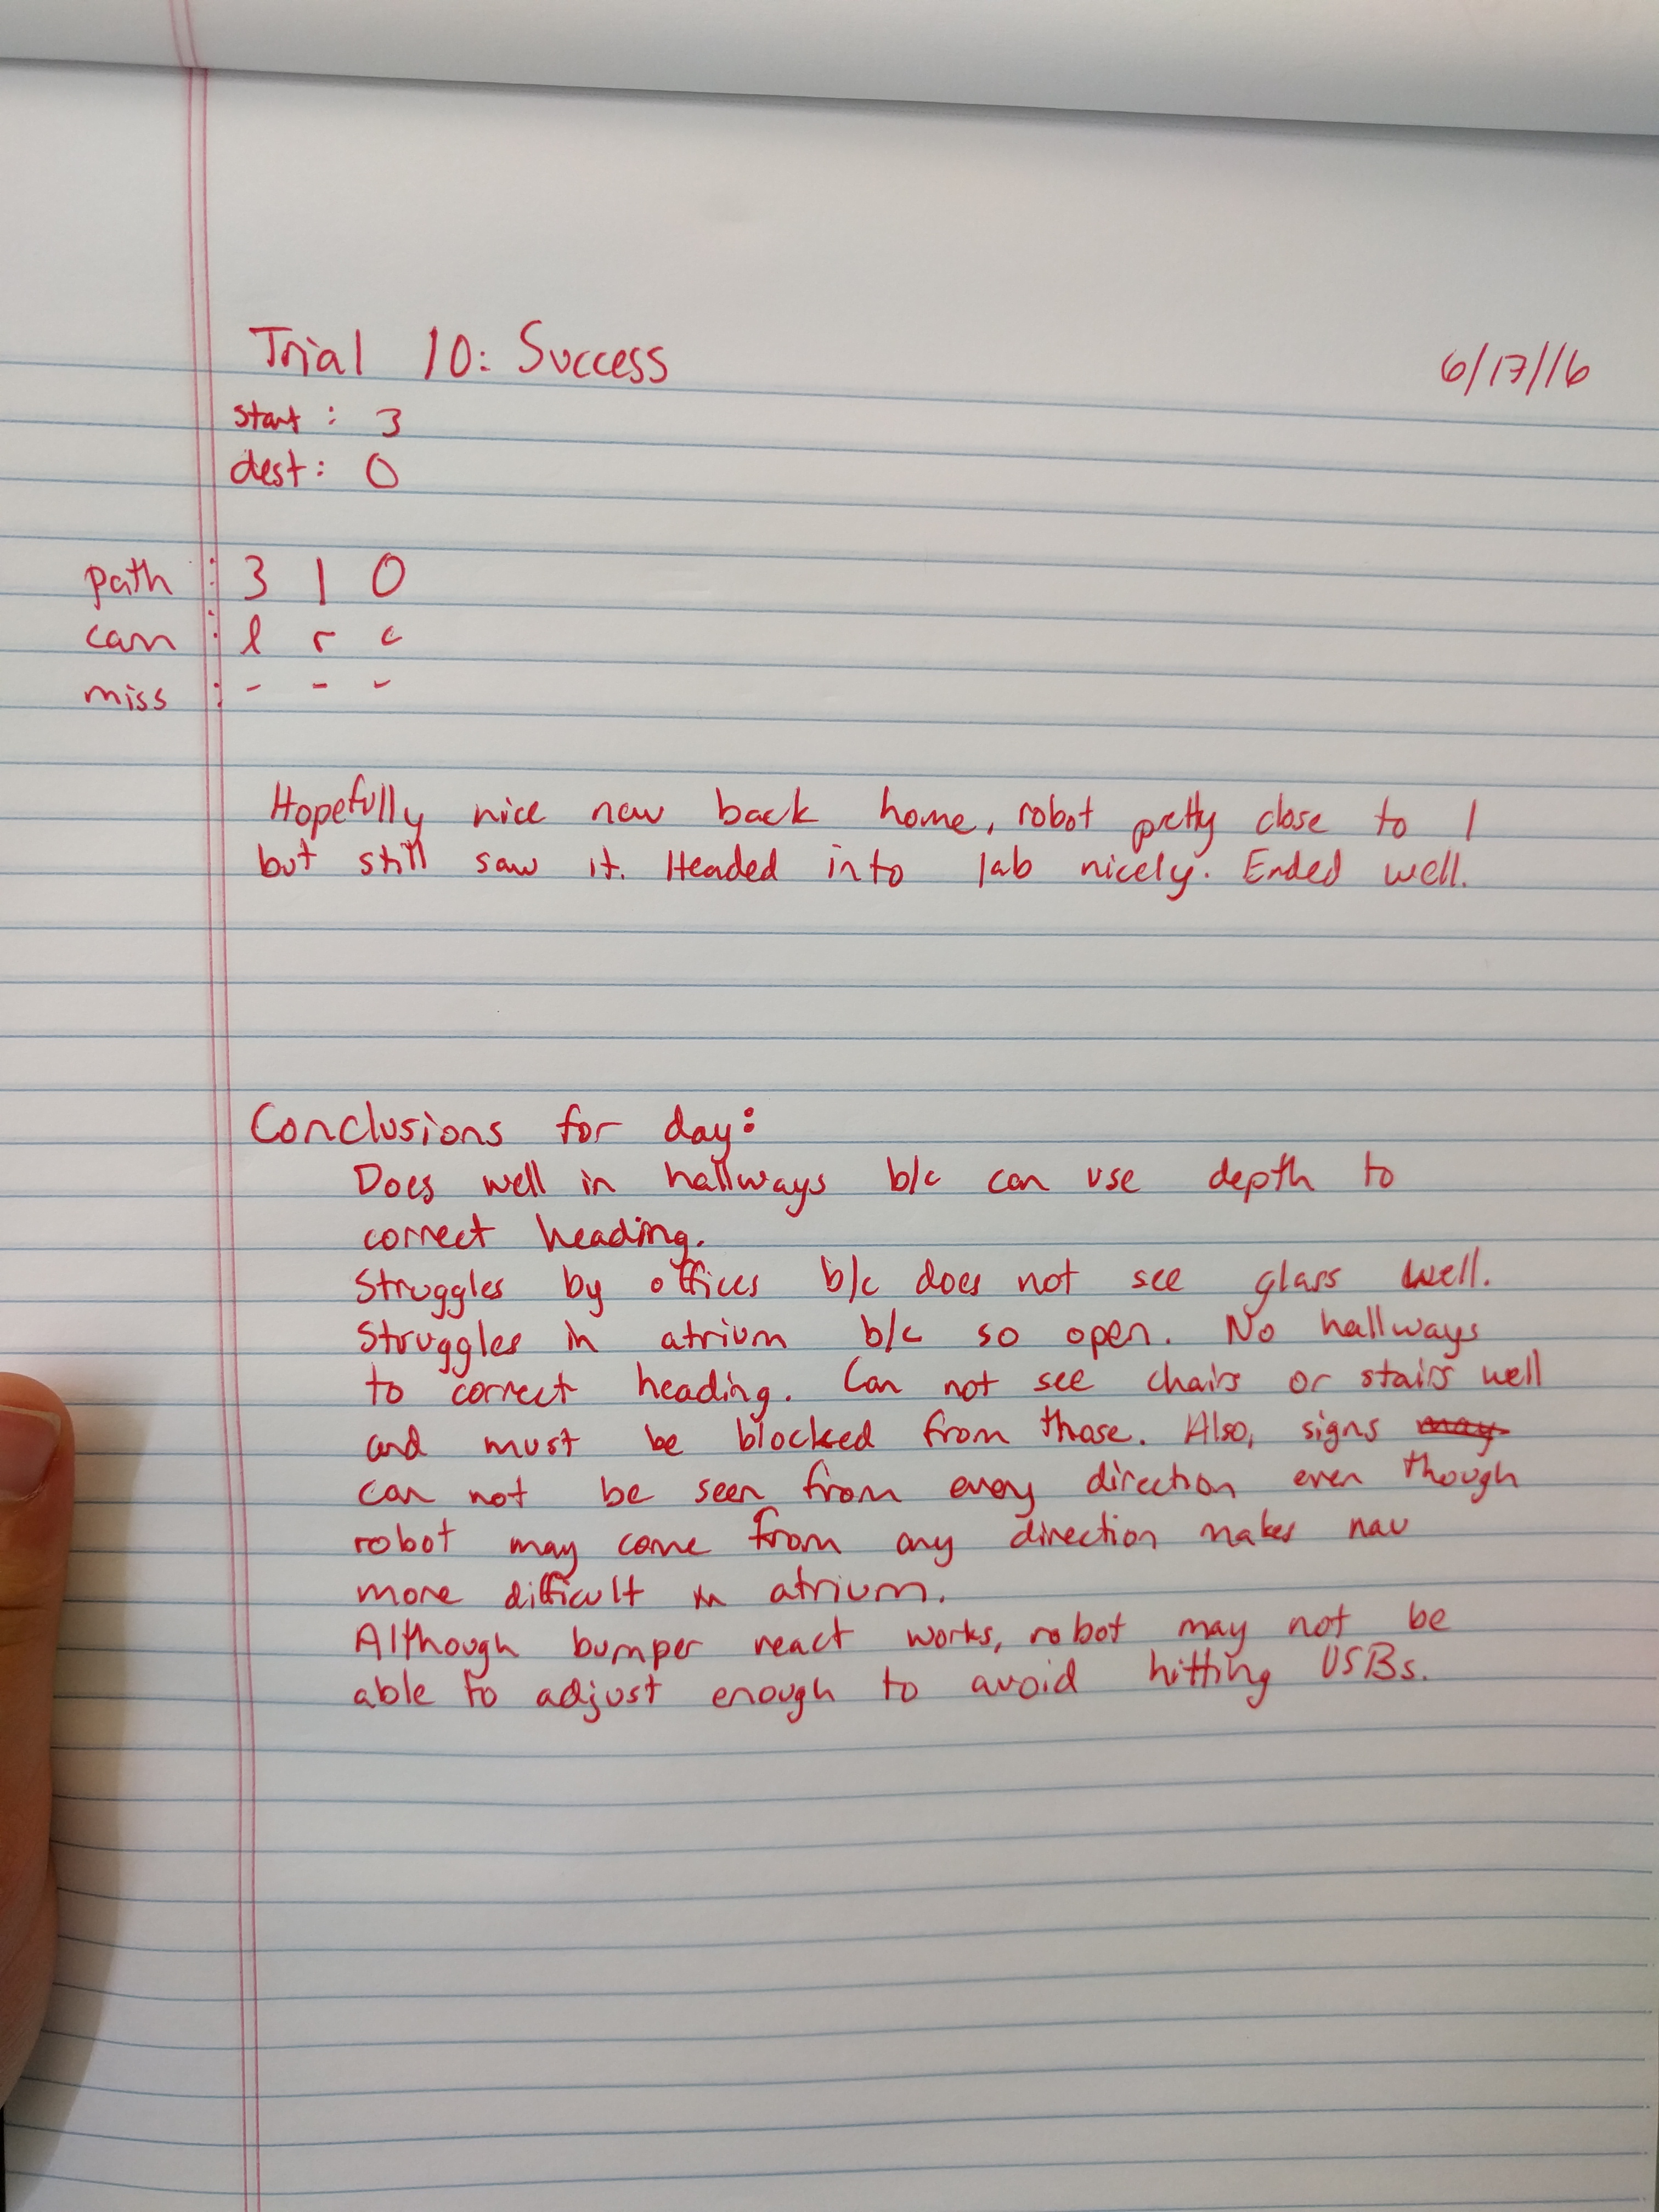 Trial 10: Success
6/17/16
start : 3
dest: 0
path : 3 1 0
cam : l r c
miss : - - -
Hopefully nice nav back home, robot pretty close to 1
but still saw it. Headed into lab nicely. Ended well.
Conclusions for day:
Does well in hallways b/c can use depth to
correct heading.
Struggles by offices b/c does not see glass well.
Struggles in atrium b/c so open. No hallways
to correct heading. Can not see chairs or stairs well
and must be blocked from those. Also, signs may
can not be seen from every direction even though
robot may come from any direction makes nav
more difficult in atrium.
Although bumper react works, robot may not be
able to adjust enough to avoid hitting USBs.